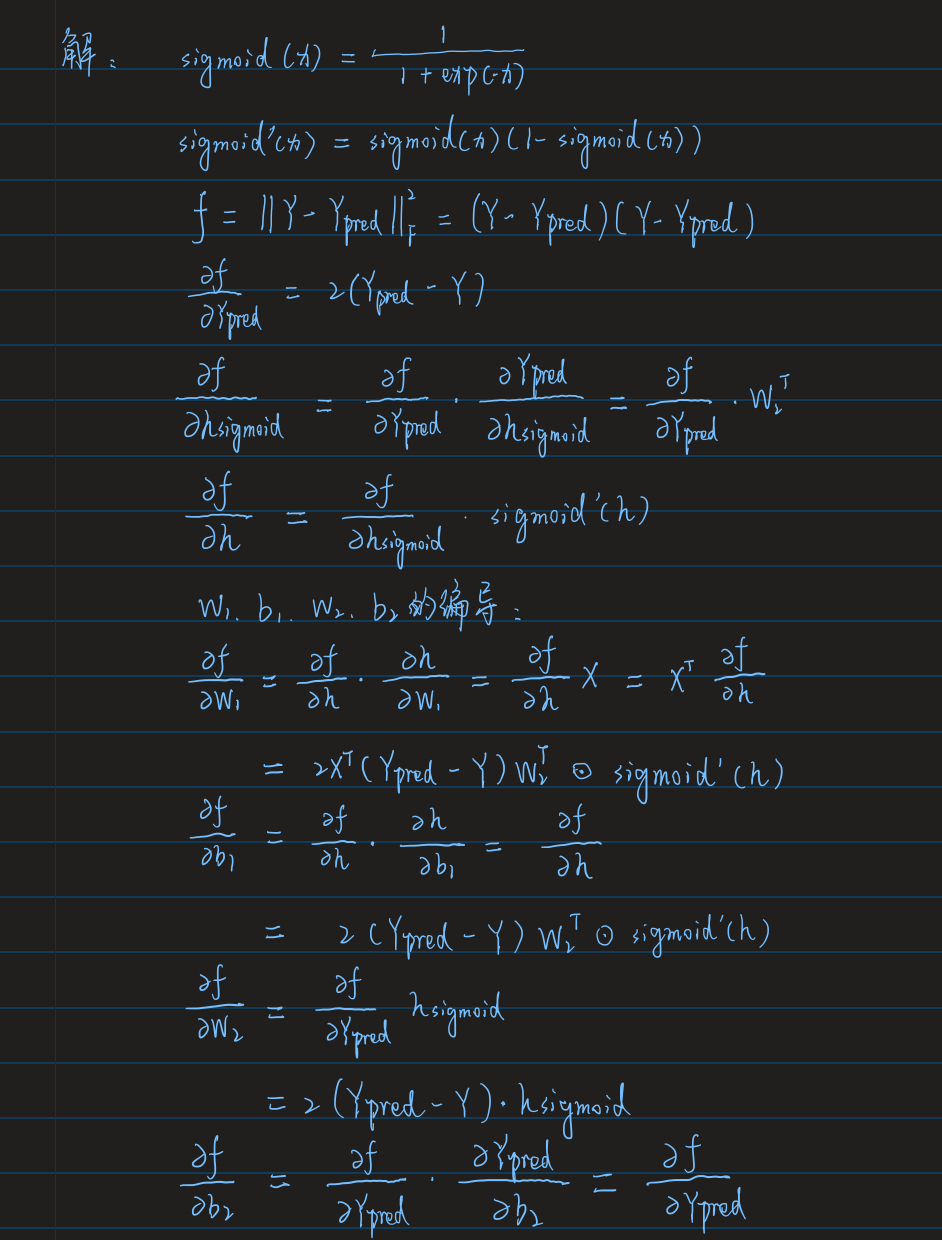 解: sigmoid(x) = 1 / (1 + exp(-x))
sigmoid'(x) = sigmoid(x)(1 - sigmoid(x))
f = ||Y - Ypred||_F^2 = (Y - Ypred)(Y - Ypred)
∂f/∂Ypred = 2(Ypred - Y)
∂f/∂hsigmoid = ∂f/∂Ypred · ∂Ypred/∂hsigmoid = ∂f/∂Ypred · W₂ᵀ
∂f/∂h = ∂f/∂hsigmoid · sigmoid'(h)
W₁. b₁. W₂. b₂ 的偏导:
∂f/∂W₁ = ∂f/∂h · ∂h/∂W₁ = ∂f/∂h X = Xᵀ ∂f/∂h
= 2Xᵀ(Ypred - Y)W₂ᵀ ⊙ sigmoid'(h)
∂f/∂b₁ = ∂f/∂h · ∂h/∂b₁ = ∂f/∂h
= 2(Ypred - Y)W₂ᵀ ⊙ sigmoid'(h)
∂f/∂W₂ = ∂f/∂Ypred hsigmoid
= 2(Ypred - Y) · hsigmoid
∂f/∂b₂ = ∂f/∂Ypred · ∂Ypred/∂b₂ = ∂f/∂Ypred